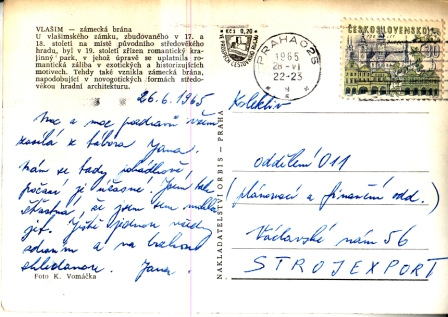 VLAŠIM — zámecká brána
U vlašimského zámku, zbudovaného v 17. a
18. století na místě původního středověkého
hradu, byl v 19. století zřízen romantický kra-
jinný park, v jehož úpravě se uplatnila ro-
mantická záliba v exotických a historizujících
motivech. Tehdy také vznikla zámecká brána,
napodobující v neogotických formách středo-
věkou hradní architekturu.
26.6.1965
Moc a moc pozdravů všem
zasílá z tábora Jana.
Mám se tady pohádkově,
počasí je úžasné. Jsem tak
šťastná, že jsem sem mohla
jet. Ještě jednou všechny
zdravím a na brzkou
shledanou. Jana.
Foto K. Vomáčka
NAKLADATELSTVÍ ORBIS — PRAHA
Kčs 0,70
PRAHA 025
1965
28-VI
22-23
ČESKOSLOVENSKO
Kolektiv
oddělení 011
(plánovací a finanční odd.)
Václavské nám 56
STROJEXPORT